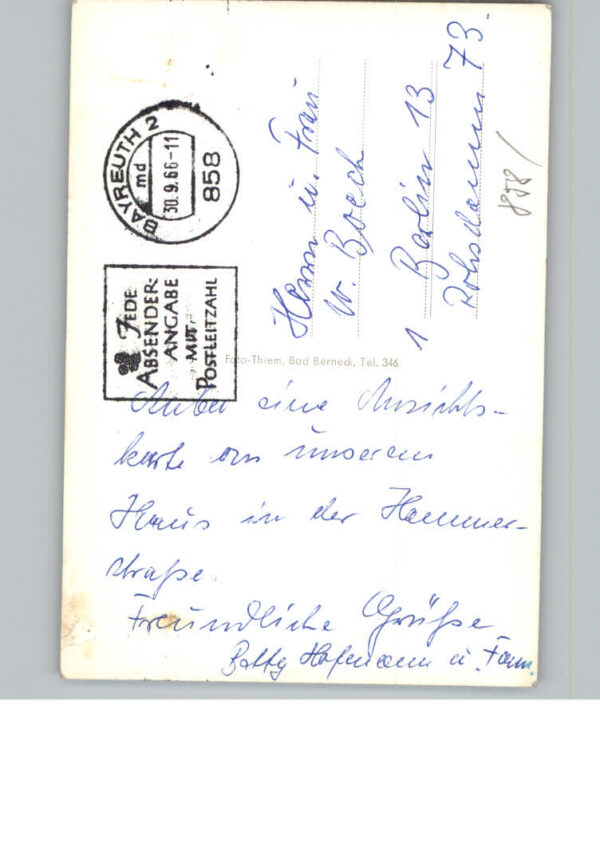 BAYREUTH 2
md
30.9.66-11
858
JEDE
ABSENDER-
ANGABE
MIT
POSTLEITZAHL
Herrn u. Frau
W. Boeck
1 Berlin 13
Rohrdamm 73.
858/
Foto-Thiem, Bad Berneck, Tel. 346
Anbei eine Ansichts-
karte von unserem
Haus in der Hammer-
straße.
Freundliche Grüße
Betty Hofmann u. Fam.